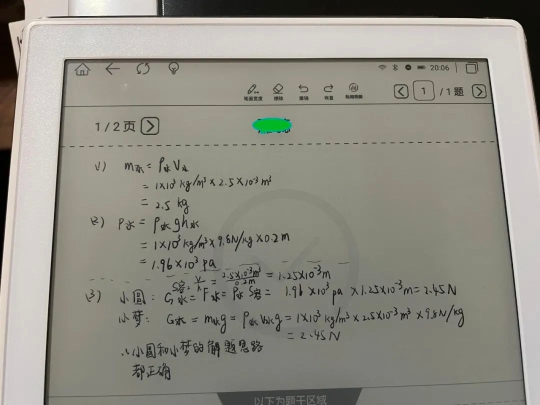 20:06
笔画宽度 擦除 撤销 恢复 我的相册
1 /1题
1/2页
(1) m水 = ρ水V水
= 1×10³ kg/m³ × 2.5×10⁻³ m³
= 2.5 kg
(2) P水 = ρ水gh水
= 1×10³ kg/m³ × 9.8N/kg × 0.2m
= 1.96×10³ pa
S容 = V/h = 2.5×10⁻³m³/0.2m = 1.25×10⁻³m
(3) 小圆: G水 = F水 = P水 S容 = 1.96 ×10³ pa ×1.25×10⁻³m = 2.45N
小梦: G水 = m水g = ρ水V水g = 1×10³ kg/m³ × 2.5×10⁻³ m³ × 9.8 N/kg
= 2.45N
∴ 小圆和小梦的解题思路
都正确
以下为题干区域